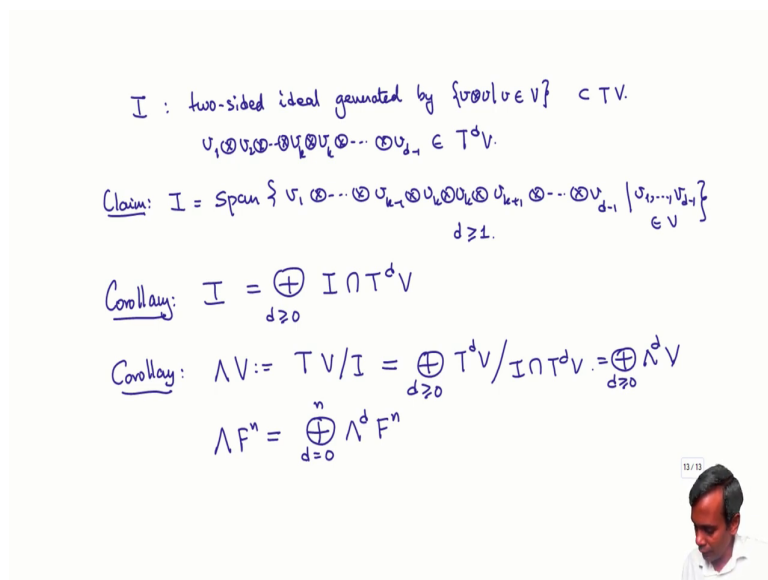 I : two-sided ideal generated by {v⊗v | v ∈ V} ⊂ TV.
v₁⊗v₂⊗--⊗v_k⊗v_k⊗--- ⊗v_{d-1} ∈ T^d V.
Claim: I = span { v₁ ⊗--- ⊗ v_{k-1}⊗v_k⊗v_k⊗ v_{k+1} ⊗--- ⊗v_{d-1} | v₁,...,v_{d-1} ∈ V }
d ≥ 1.
Corollary: I = ⊕_{d≥0} I ∩ T^d V
Corollary: ΛV := TV/I = ⊕_{d≥0} T^d V / I∩T^d V. = ⊕_{d≥0} Λ^d V
ΛF^n = ⊕_{d=0}^{n} Λ^d F^n
13 / 13